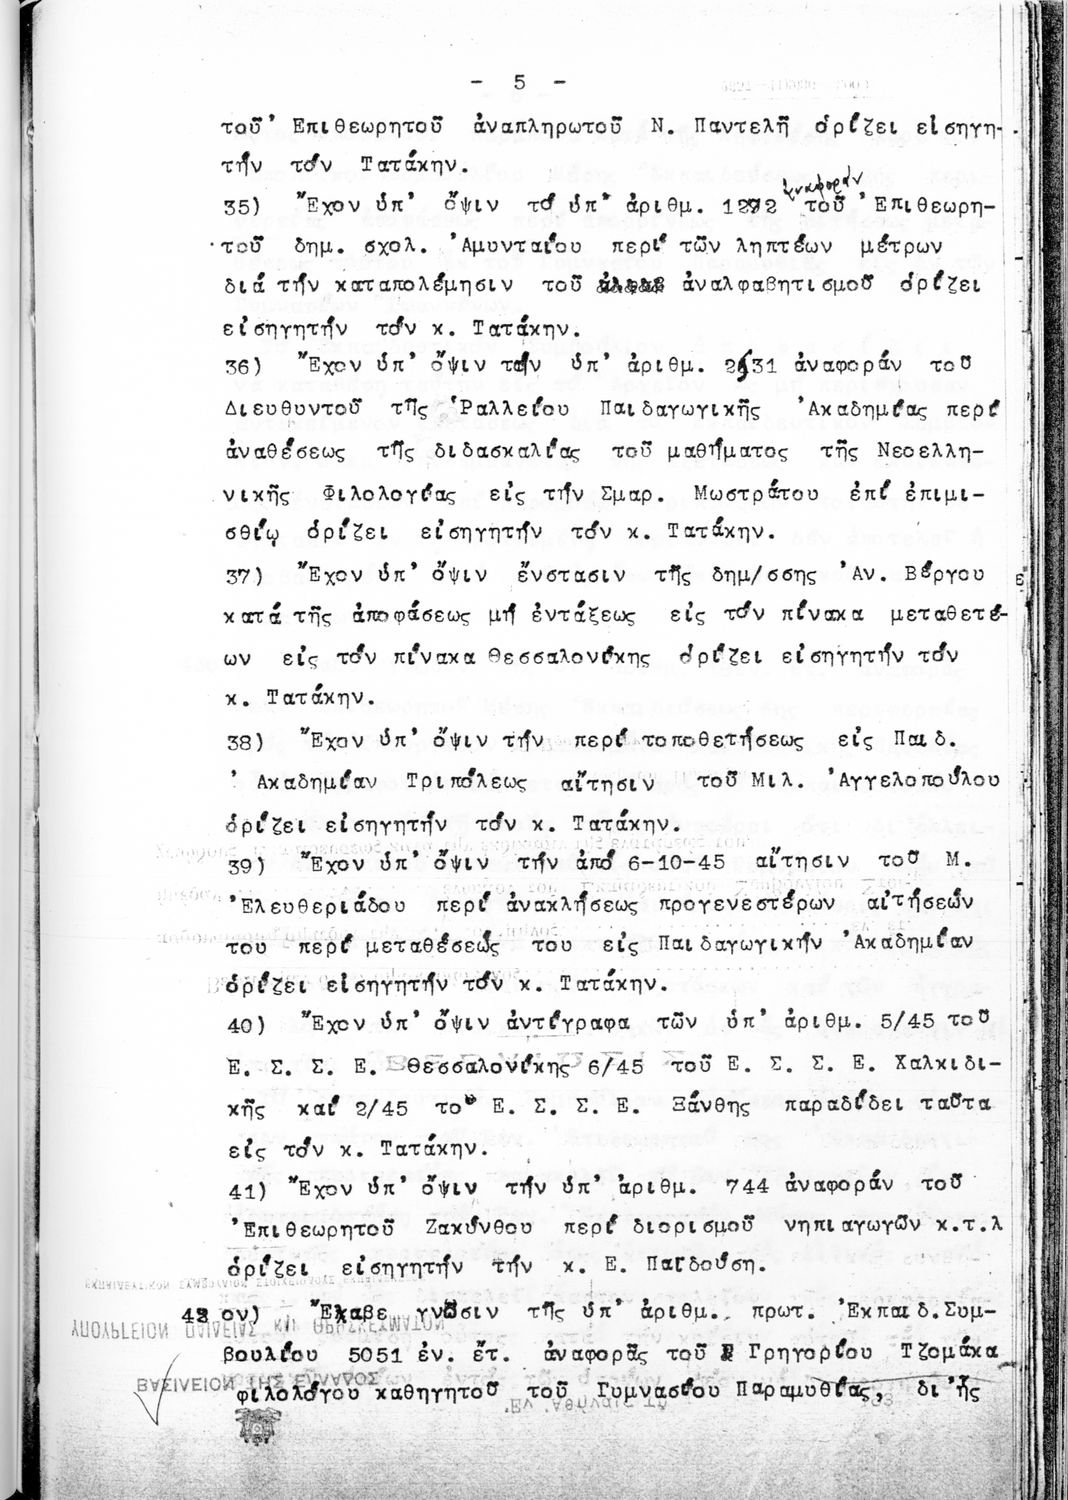 - 5 -
τοῦ Ἐπιθεωρητοῦ ἀναπληρωτοῦ Ν. Παντελῆ ὁρίζει εἰσηγη-
τήν τόν Τατάκην.
35) Ἔχον ὑπ' ὄψιν τό ὑπ' ἀριθμ. 1292 ἀναφοράν τοῦ Ἐπιθεωρη-
τοῦ δημ. σχολ. Ἀμυνταίου περί τῶν ληπτέων μέτρων
διά τήν καταπολέμησιν τοῦ ἀναλφαβητισμοῦ ὁρίζει
εἰσηγητήν τόν κ. Τατάκην.
36) Ἔχον ὑπ' ὄψιν τήν ὑπ' ἀριθμ. 2631 ἀναφοράν τοῦ
Διευθυντοῦ τῆς Ῥαλλείου Παιδαγωγικῆς Ἀκαδημίας περί
ἀναθέσεως τῆς διδασκαλίας τοῦ μαθήματος τῆς Νεοελλη-
νικῆς Φιλολογίας εἰς τήν Σμαρ. Μωστράτου ἐπί ἐπιμι-
σθίῳ ὁρίζει εἰσηγητήν τόν κ. Τατάκην.
37) Ἔχον ὑπ' ὄψιν ἔνστασιν τῆς δημ/σσης Ἀν. Βέργου
κατά τῆς ἀποφάσεως μή ἐντάξεως εἰς τόν πίνακα μεταθετέ-
ων εἰς τόν πίνακα Θεσσαλονίκης ὁρίζει εἰσηγητήν τόν
κ. Τατάκην.
38) Ἔχον ὑπ' ὄψιν τήν περί τοποθετήσεως εἰς Παιδ.
Ἀκαδημίαν Τριπόλεως αἴτησιν τοῦ Μιλ. Ἀγγελοπούλου
ὁρίζει εἰσηγητήν τόν κ. Τατάκην.
39) Ἔχον ὑπ' ὄψιν τήν ἀπό 6-10-45 αἴτησιν τοῦ Μ.
Ἐλευθεριάδου περί ἀνακλήσεως προγενεστέρων αἰτήσεών
του περί μεταθέσεώς του εἰς Παιδαγωγικήν Ἀκαδημίαν
ὁρίζει εἰσηγητήν τόν κ. Τατάκην.
40) Ἔχον ὑπ' ὄψιν ἀντίγραφα τῶν ὑπ' ἀριθμ. 5/45 τοῦ
Ε. Σ. Σ. Ε. Θεσσαλονίκης 6/45 τοῦ Ε. Σ. Σ. Ε. Χαλκιδι-
κῆς καί 2/45 τοῦ Ε. Σ. Σ. Ε. Ξάνθης παραδίδει ταῦτα
εἰς τόν κ. Τατάκην.
41) Ἔχον ὑπ' ὄψιν τήν ὑπ' ἀριθμ. 744 ἀναφοράν τοῦ
Ἐπιθεωρητοῦ Ζακύνθου περί διορισμοῦ νηπιαγωγῶν κ.τ.λ
ὁρίζει εἰσηγητήν τήν κ. Ε. Παϊδούση.
42 ον) Ἔλαβε γνῶσιν τῆς ὑπ' ἀριθμ. πρωτ. Ἐκπαιδ.Συμ-
βουλίου 5051 ἐν. ἔτ. ἀναφορᾶς τοῦ Γρηγορίου Τζομάκα
φιλολόγου καθηγητοῦ τοῦ Γυμνασίου Παραμυθίας, δι' ἧς